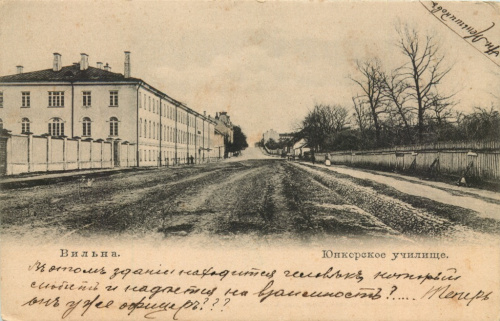 Вильна.
Юнкерское училище.
Въ этомъ зданіи находится человѣкъ, который
любитъ и надѣется на взаимность?.... Теперь
онъ уже офицеръ???